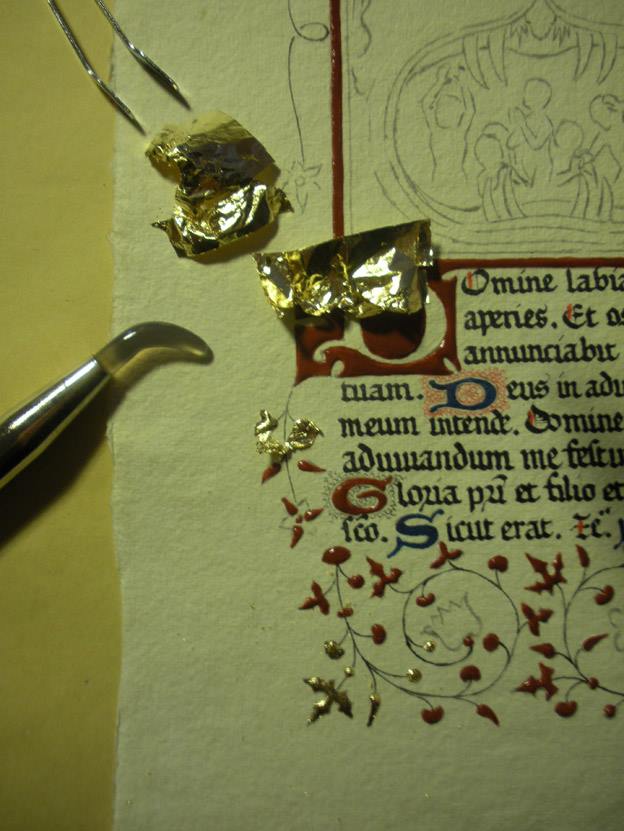 Omine labia
aperies. Et os
annunciabit
tuam. Deus in adiu
meum intende. Domine
adiuuandum me festi
Gloria pri et filio et
sco. Sicut erat.